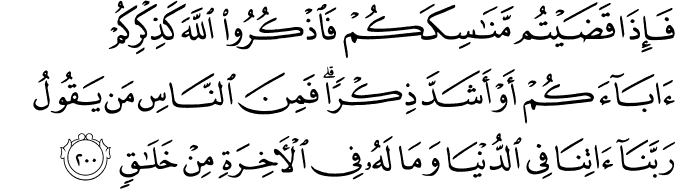 فَإِذَا قَضَيْتُم مَّنَٰسِكَكُمْ فَٱذْكُرُوا۟ ٱللَّهَ كَذِكْرِكُمْ
ءَابَآءَكُمْ أَوْ أَشَدَّ ذِكْرًا ۗ فَمِنَ ٱلنَّاسِ مَن يَقُولُ
رَبَّنَآ ءَاتِنَا فِى ٱلدُّنْيَا وَمَا لَهُۥ فِى ٱلْءَاخِرَةِ مِنْ خَلَٰقٍ ٢٠٠